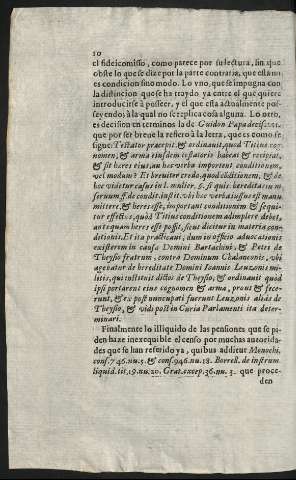 20
el fideicomisso, como parece por su lectura, sin que
obste lo que se dize por la parte contraria, que esta no
es condicion sino modo. Lo vno, que se impugna con
la distincion que se ha traydo ya entre el que quiere
introducirse à posseer, y el que està actualmente pos-
seyendo; à la qual no se replica cosa alguna. Lo otro,
es decision en terminos la de Guidon Papa decis.
que por ser breue la refiero à la letra, que es como se
sigue: Testator præcepit, & ordinauit, quod Titius cog-
nomen, & arma eiusdem testatoris habeat & recipiat,
& sit heres eius, an hæc verba important conditionem,
vel modum? Et breuiter credo, quod conditionem, & de
hoc videtur casus in l. mulier. §. si quis hereditarium
seruum ff. de condit. instit. vbi hoc verba iussus esset manu
mittere, & heres esse, important conditionem & sequi-
tur effectus, quòd Titius conditionem adimplere debet,
antequam heres esse possit, sicut dicitur in materia con-
ditionis. Et ita practicaui, dum in officio aduocationis
existerem in causa Domini Bartachini, & Petri de
Theyso fratrum, contra Dominum Chalanconis, vbi
agebatur de hereditate Domini Ioannis Leuzonis mi-
litis, qui instituit dictos de Theyso, & ordinauit quod
ipsi portarent eius cognomen & arma, prout & fece-
runt, & ex post nuncupati fuerunt Leuzonis aliàs de
Theyso, & vidi post in Curia Parlamenti ita deter-
minari.
Finalmente lo illiquido de las pensiones que se pi-
den haze inexequible el censo por muchas autorida-
des que se han referido ya, quibus additur Menochi.
cons. 746. nu. 5. & cons. 946. nu. 18. Borrell. de instrum.
liquid. tit. 19. nu. 20. Grat. excep. 36. nu. 3. que proce-
den